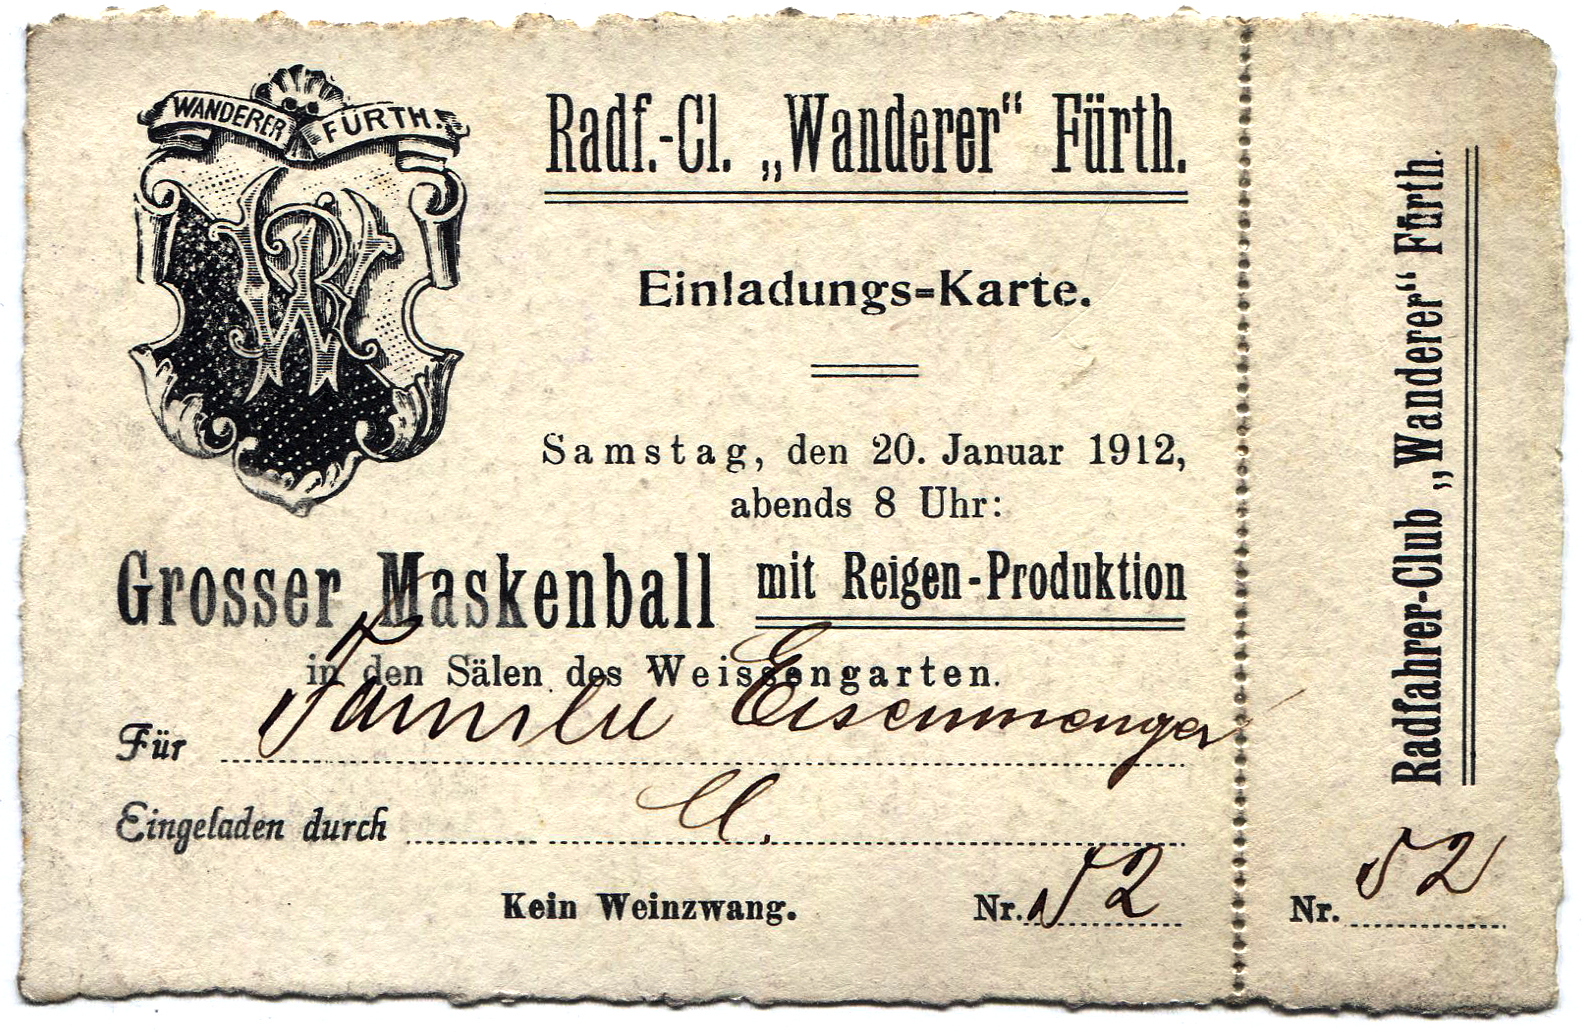 WANDERER FÜRTH.
Radf.-Cl. „Wanderer“ Fürth.
Einladungs-Karte.
Samstag, den 20. Januar 1912,
abends 8 Uhr:
Grosser Maskenball mit Reigen-Produktion
in den Sälen des Weissengarten.
Für Familie Eisenmenger
Eingeladen durch
Kein Weinzwang. Nr. 52
Radfahrer-Club „Wanderer“ Fürth.
Nr. 52